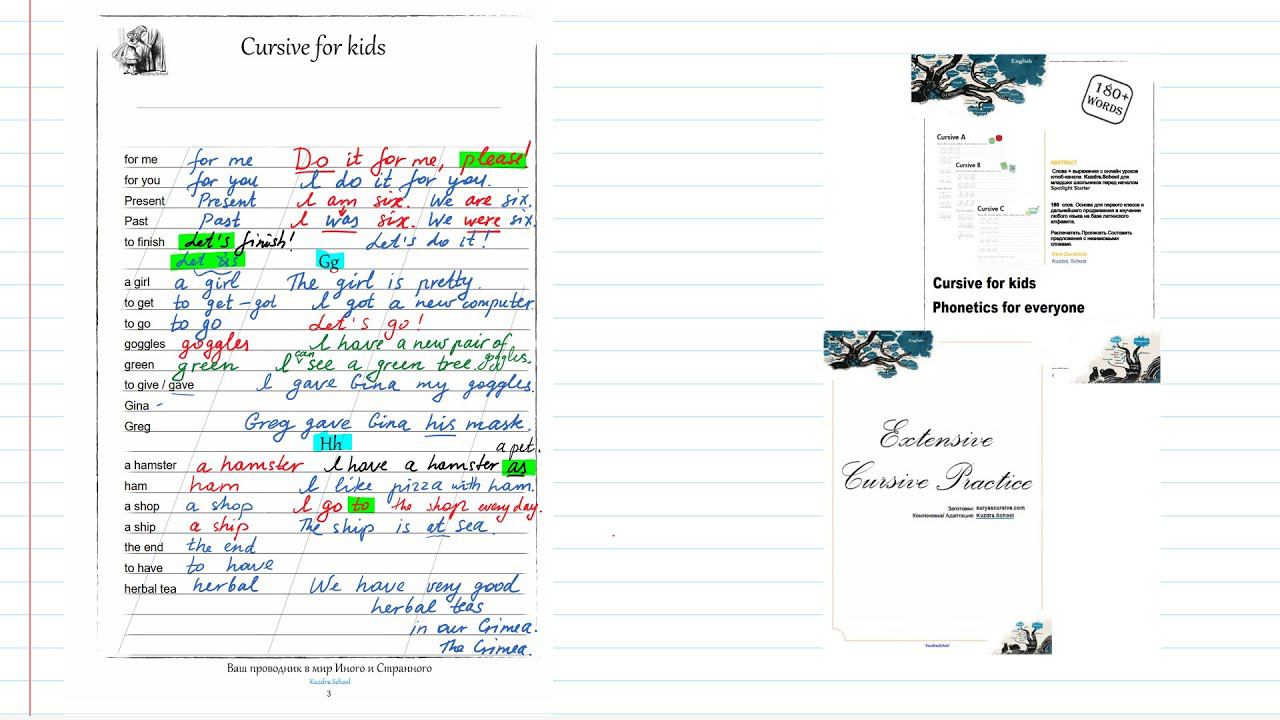 Kuzdra.School
Cursive for kids
for me for me Do it for me, please!
for you for you I do it for you.
Present Present I am six. We are six.
Past Past I was six. We were six.
to finish Let's finish! Let's do it!
Let us Gg
a girl a girl The girl is pretty.
to get to get - got I got a new computer.
to go to go Let's go!
goggles goggles I have a new pair of
goggles.
green green I can see a green tree.
to give / gave I gave Gina my goggles.
Gina
Greg Greg gave Gina his mask.
Hh
a pet.
a hamster a hamster I have a hamster as
ham ham I like pizza with ham.
a shop a shop I go to the shop every day.
a ship a ship The ship is at sea.
the end the end
to have to have
herbal tea herbal We have very good
herbal teas
in our Crimea.
The Crimea.
Ваш проводник в мир Иного и Странного
Kuzdra.School
3
English
180+
WORDS
Cursive A
Cursive B
Cursive C
ABSTRACT
Слова + выражения с онлайн уроков
ютюб-канала Kuzdra.School для
младших школьников перед началом
Spotlight Starter
180 слов. Основа для первого класса и
дальнейшего продвижения в изучении
любого языка на базе латинского
алфавита.
Распечатать Прописать Составить
предложения с незнакомыми
словами.
Kuzdra. School
Cursive for kids
Phonetics for everyone
English
Extensive
Cursive Practice
Заготовки: suryascursive.com
Компоновка/ Адаптация: Kuzdra.School
Kuzdra.School